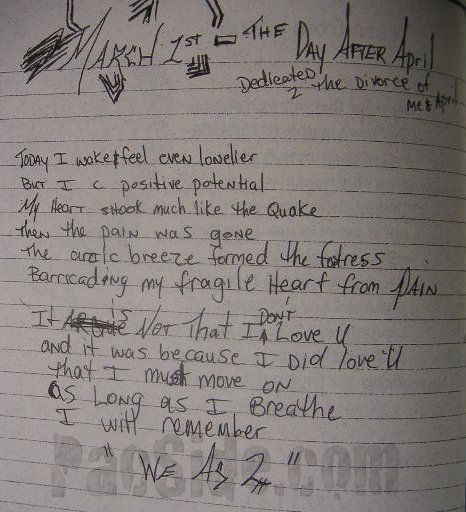 MARCH 1ST - THE DAY AFTER April
Dedicated 2 the Divorce of
Me & April
TODAY I wake & feel even lonelier
But I c positive potential
My Heart shook much like the Quake
then the pain was gone
The arctic breeze formed the fotress
Barricading my fragile Heart from PAIN
It is NOT That I DON'T Love U
and it was because I DiD love U
that I must move ON
as LONG as I Breathe
I will remember
"WE AS 2"
PacSide.com